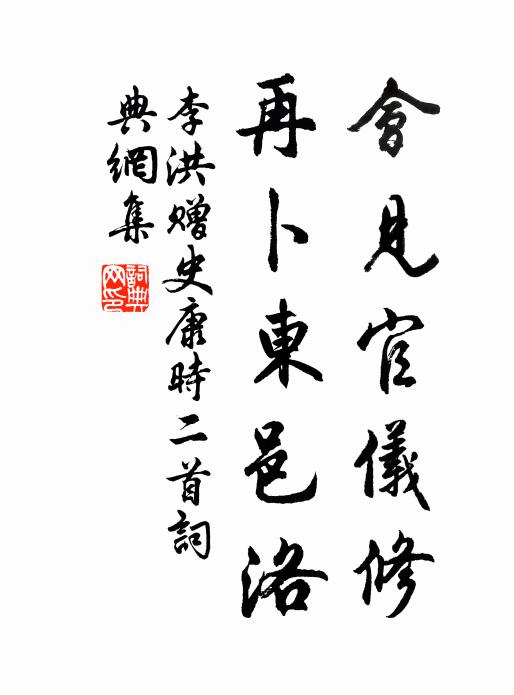 會見官儀修
再卜東邑洛
李洪贈史康時二首詞
典網集
詞典網印